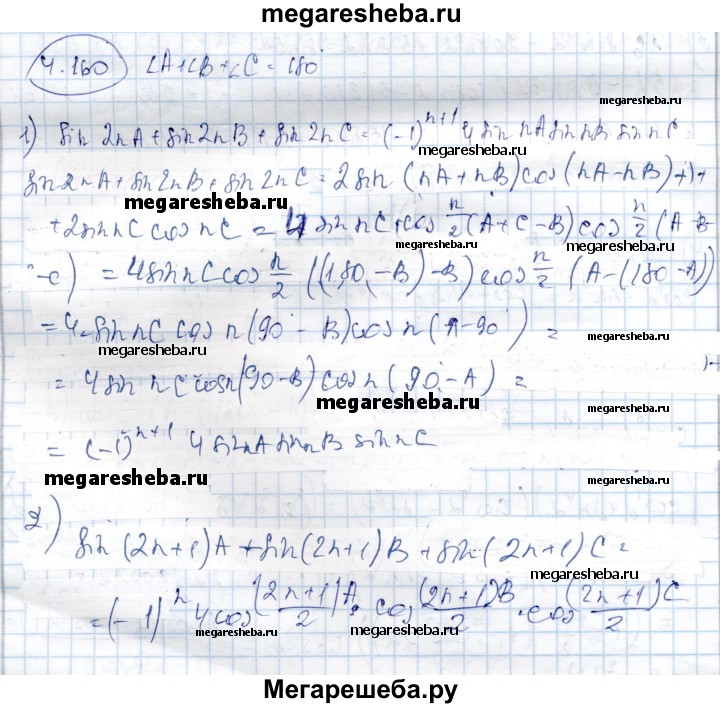 megaresheba.ru
4.160 ∠A+∠B+∠C=180°
megaresheba.ru
1) sin 2nA + sin 2nB + sin 2nC = (-1)^{n+1} 4 sin nA sin nB sin nC
megaresheba.ru
sin 2nA + sin 2nB + sin 2nC = 2 sin (nA+nB) cos (nA-nB) +
megaresheba.ru
+ 2 sin nC cos nC = 4 sin nC · cos n/2 (A+C-B) cos n/2 (A-B-
megaresheba.ru
-C) = 4 sin nC cos n/2 ((180-B)-B) cos n/2 (A-(180-A))
= 4 sin nC cos n(90°-B) cos n(A-90°) =
megaresheba.ru megaresheba.ru
= 4 sin nC cos n(90-B) cos n(90-A) =
megaresheba.ru
= (-1)^{n+1} 4 sin nA sin nB sin nC
megaresheba.ru megaresheba.ru
2) sin (2n+1)A + sin (2n+1)B + sin (2n+1)C =
megaresheba.ru
= (-1)^n 4 cos (2n+1)A/2 · cos (2n+1)B/2 · cos (2n+1)C/2
megaresheba.ru megaresheba.ru
Мегарешеба.ру